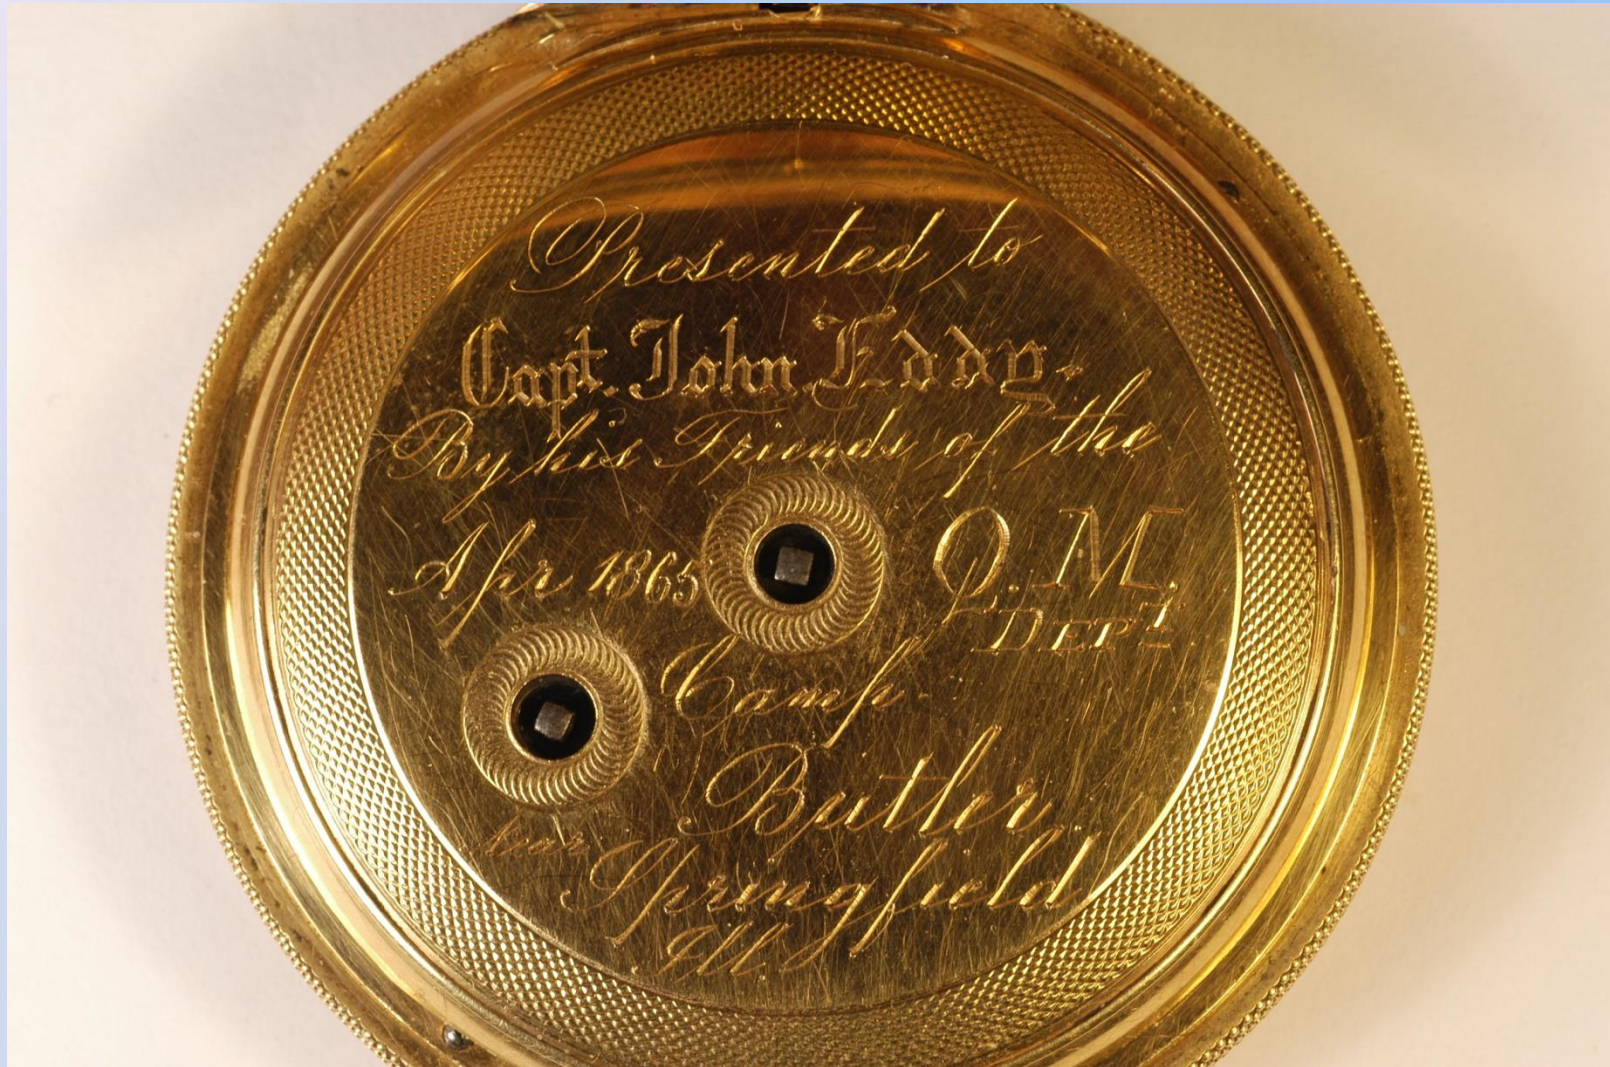 Presented to
Capt. John Eddy.
By his Friends of the
Apr 1865 Q. M.
DEPT.
Camp
Butler,
near Springfield
Ill.